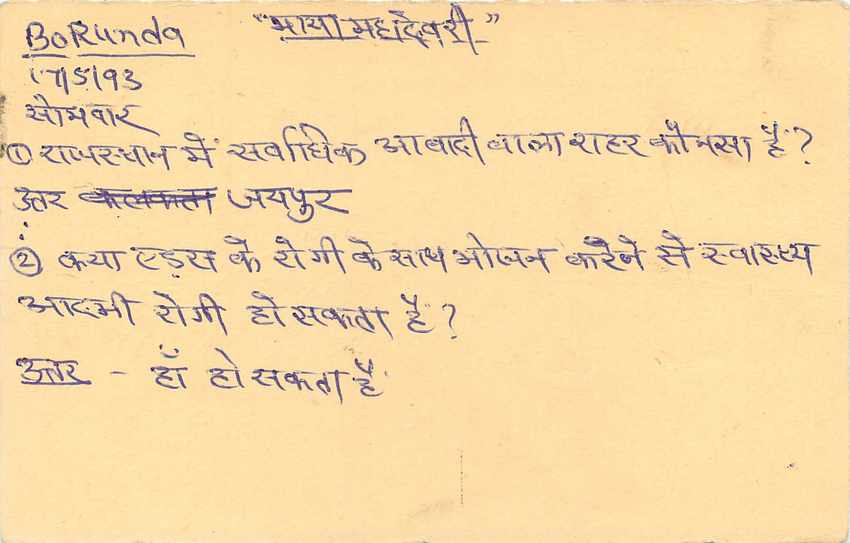 BoRunda "माया महादेवरी"
17/5/93
सोमवार
① राजस्थान में सर्वाधिक आबादी वाला शहर कौनसा है?
उत्तर कलकत्ता जयपुर
② क्या एड्स के रोगी के साथ भोजन करने से स्वास्थ्य
आदमी रोगी हो सकता है?
उत्तर - हाँ हो सकता है